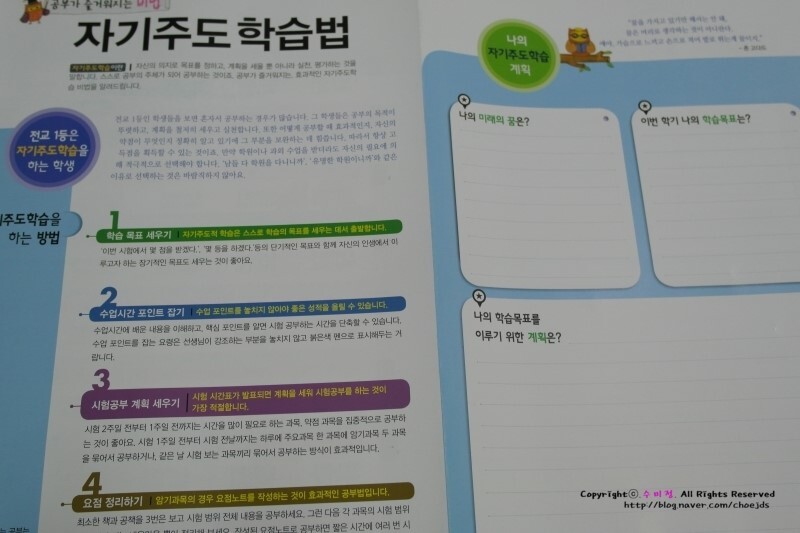 공부가 즐거워지는 비법
자기주도 학습법
자기주도학습이란 | 자신의 의지로 목표를 정하고, 계획을 세울 뿐 아니라 실천, 평가하는 것을
말합니다. 스스로 공부의 주체가 되어 공부하는 것이죠. 공부가 즐거워지는, 효과적인 자기주도학
습 비법을 알려드립니다.
전교 1등은
자기주도학습을
하는 학생
전교 1등인 학생들을 보면 혼자서 공부하는 경우가 많습니다. 그 학생들은 공부의 목적이
뚜렷하고, 계획을 철저히 세우고 실천합니다. 또한 어떻게 공부할 때 효과적인지, 자신의
약점이 무엇인지 정확히 알고 있기에 그 부분을 보완하는 데 힘씁니다. 따라서 항상 고
득점을 획득할 수 있는 것이죠. 만약 학원이나 과외 수업을 받더라도 자신의 필요에 의
해 적극적으로 선택해야 합니다. '남들 다 학원을 다니니까', '유명한 학원이니까'와 같은
이유로 선택하는 것은 바람직하지 않아요.
기주도학습을
하는 방법
1
학습 목표 세우기 | 자기주도적 학습은 스스로 학습의 목표를 세우는 데서 출발합니다.
'이번 시험에서 몇 점을 받겠다.', '몇 등을 하겠다.' 등의 단기적인 목표와 함께 자신의 인생에서 이
루고자 하는 장기적인 목표도 세우는 것이 좋아요.
2
수업시간 포인트 잡기 | 수업 포인트를 놓치지 않아야 좋은 성적을 올릴 수 있습니다.
수업시간에 배운 내용을 이해하고, 핵심 포인트를 알면 시험 공부하는 시간을 단축할 수 있습니다.
수업 포인트를 잡는 요령은 선생님이 강조하는 부분을 놓치지 않고 붉은색 펜으로 표시해두는 거
랍니다.
3
시험공부 계획 세우기 | 시험 시간표가 발표되면 계획을 세워 시험공부를 하는 것이
가장 적절합니다.
시험 2주일 전부터 1주일 전까지는 시간을 많이 필요로 하는 과목, 약점 과목을 집중적으로 공부하
는 것이 좋아요. 시험 1주일 전부터 시험 전날까지는 하루에 주요과목 한 과목에 암기과목 두 과목
을 묶어서 공부하거나, 같은 날 시험 보는 과목끼리 묶어서 공부하는 방식이 효과적입니다.
4
요점 정리하기 | 암기과목의 경우 요점노트를 작성하는 것이 효과적인 공부법입니다.
최소한 책과 공책을 3번은 보고 시험 범위 전체 내용을 공부하세요. 그런 다음 각 과목의 시험 범위
요점노트로 공부하면 짧은 시간에 여러 번 시
나의
자기주도학습
계획
나의 미래의 꿈은?
이번 학기 나의 학습목표는?
나의 학습목표를
이루기 위한 계획은?
Copyrightⓒ 수미정. All Rights Reserved
http://blog.naver.com/choejds